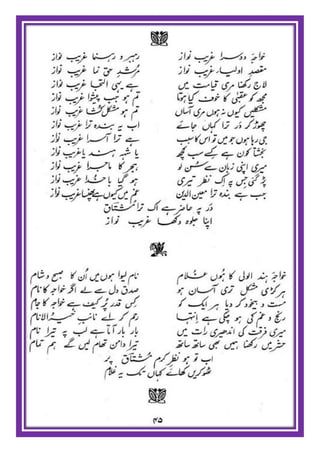 خواجۂ دوسرا غریب نواز رہبر و رہنما غریب نواز
مقصدِ اولیاء غریب نواز مرشدِ حق نما غریب نواز
لاج رکھنا مری قیامت میں ہے یہی التجا غریب نواز
مجھ کو عقبیٰ کا خوف کیا ہوتا تم ہو جب پیشوا غریب نواز
مشکلیں کیوں نہ ہوں مری آساں تم ہو مشکل کشا غریب نواز
چھوڑ کر در ترا کہاں جائے اب یہ بندہ ترا غریب نواز
جی رہا ہوں جو میں تو اس کا سبب ہے ترا آسرا غریب نواز
بخشتا کون ہے سب کچھ یا شہ ہند یا غریب نواز
میری اپنی زباں سے سن لو ہجر کا ماجرا غریب نواز
پڑ گئی جس پہ اک نظر تیری ہو گیا با خدا غریب نواز
جب ہے بندہ ترا معین الدیں غم میں کیوں ہے غریب نواز
در پہ حاضر ہے اک ترا مشتاق
اپنا جلوہ دکھا غریب نواز
خواجۂ ہند الولی کا ہوں غلام نام لیوا ہوں میں ان کا صبح و شام
ہر کڑی مشکل تری آسان ہو صدق دل سے لے اگر خواجہ کا نام
مست و بیخود کر دیا ہر ایک کو کس قدر پُر کیف ہے خواجہ کا جام
رنج و غم کی ہو چکی ہے انتہا رحم کر اے نائب خیر الانام
میری فرقت کی اندھیری رات میں بار بار آتا ہے لب پہ تیرا نام
حشر میں رکھنا ہمیں بھی ساتھ ساتھ تیرا دامن تھام لیں گے ہم تمام
اب تو ہو نظر کرم مشتاق پر
ٹھوکریں کھائے کہاں تک یہ غلام
۴۵